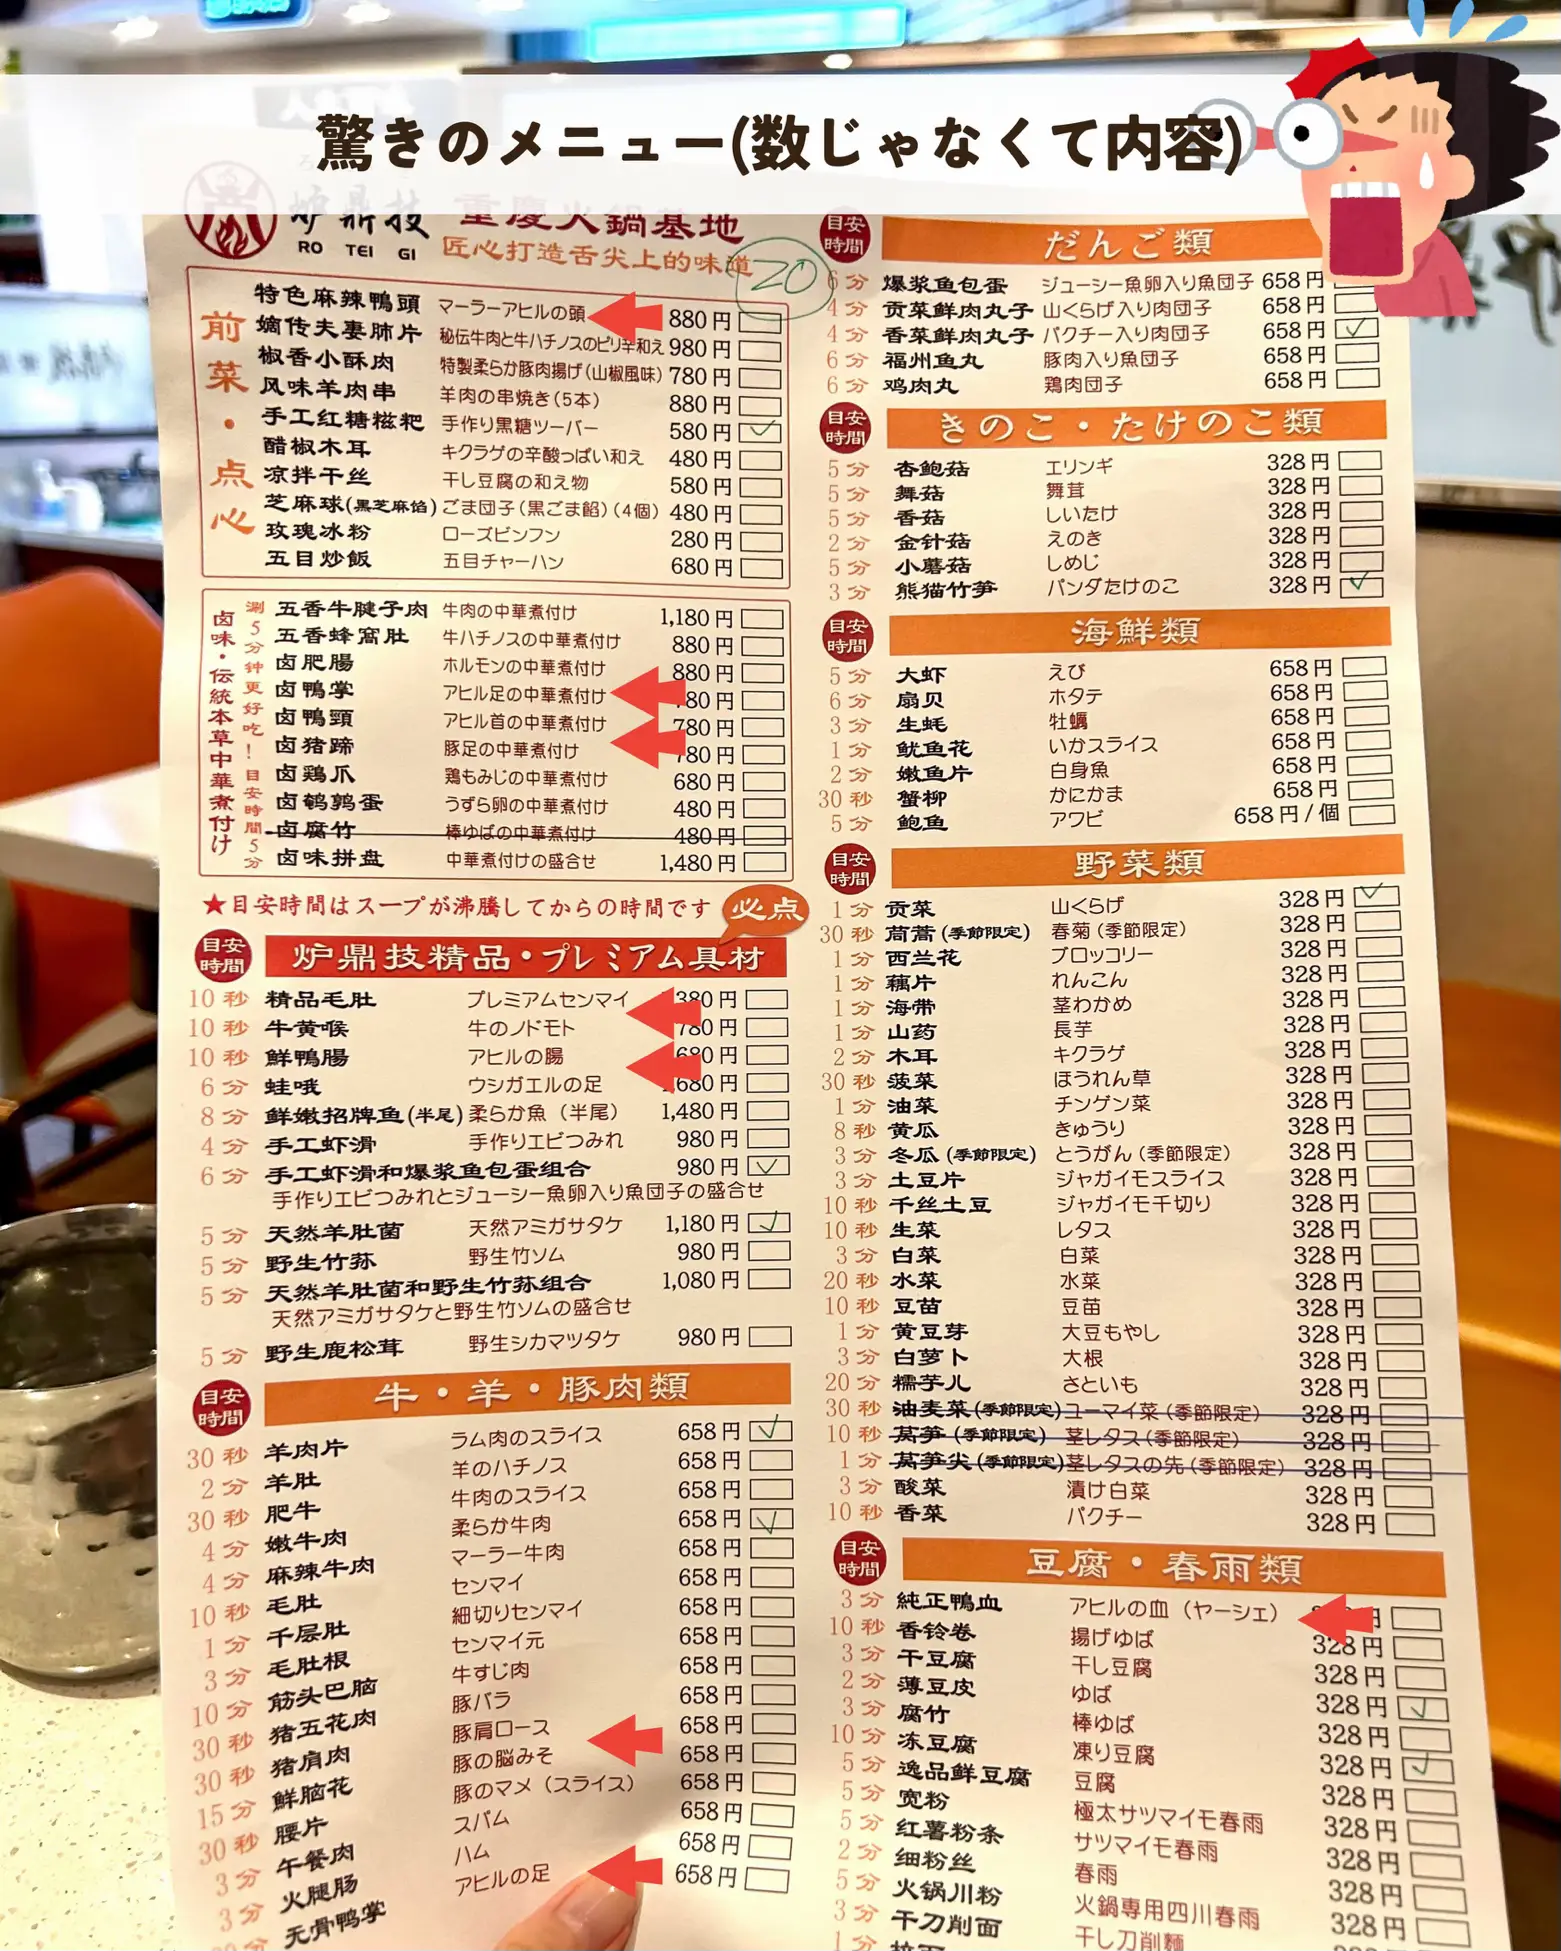 驚きのメニュー(数じゃなくて内容)
炉鼎技 重慶火鍋基地
RO TEI GI 匠心打造舌尖上的味道
20
前菜・点心
特色麻辣鴨頭 マーラーアヒルの頭 880円
嫡传夫妻肺片 秘伝牛肉と牛ハチノスのピリ辛和え 980円
椒香小酥肉 特製柔らか豚肉揚げ(山椒風味) 780円
风味羊肉串 羊肉の串焼き(5本) 880円
手工红糖糍粑 手作り黒糖ツーバー 580円
醋椒木耳 キクラゲの辛酸っぱい和え 480円
凉拌干丝 干し豆腐の和え物 580円
芝麻球(黑芝麻馅) ごま団子(黒ごま餡)(4個) 480円
玫瑰冰粉 ローズビンフン 280円
五目炒飯 五目チャーハン 680円
卤味・伝統本草中華煮付け
涮5分钟更好吃!目安時間5分
五香牛腱子肉 牛肉の中華煮付け 1,180円
五香蜂窩肚 牛ハチノスの中華煮付け 880円
卤肥腸 ホルモンの中華煮付け 880円
卤鴨掌 アヒル足の中華煮付け 80円
卤鴨頸 アヒル首の中華煮付け 780円
卤猪蹄 豚足の中華煮付け 780円
卤鶏爪 鶏もみじの中華煮付け 680円
卤鹌鹑蛋 うずら卵の中華煮付け 480円
卤腐竹 棒ゆばの中華煮付け 480円
卤味拼盘 中華煮付けの盛合せ 1,480円
★目安時間はスープが沸騰してからの時間です 必点
目安時間 炉鼎技精品・プレミアム具材
10秒 精品毛肚 プレミアムセンマイ 380円
10秒 牛黄喉 牛のノドモト 780円
10秒 鮮鴨腸 アヒルの腸 680円
6分 蛙哦 ウシガエルの足 1,680円
8分 鮮嫩招牌鱼(半尾) 柔らか魚(半尾) 1,480円
4分 手工虾滑 手作りエビつみれ 980円
6分 手工虾滑和爆浆鱼包蛋组合 980円
手作りエビつみれとジューシー魚卵入り魚団子の盛合せ
5分 天然羊肚菌 天然アミガサタケ 1,180円
5分 野生竹荪 野生竹ソム 980円
5分 天然羊肚菌和野生竹荪组合 1,080円
天然アミガサタケと野生竹ソムの盛合せ
5分 野生鹿松茸 野生シカマツタケ 980円
目安時間 牛・羊・豚肉類
30秒 羊肉片 ラム肉のスライス 658円
2分 羊肚 羊のハチノス 658円
30秒 肥牛 牛肉のスライス 658円
4分 嫩牛肉 柔らか牛肉 658円
4分 麻辣牛肉 マーラー牛肉 658円
10秒 毛肚 センマイ 658円
1分 千层肚 細切りセンマイ 658円
3分 毛肚根 センマイ元 658円
10分 筋头巴脑 牛すじ肉 658円
30秒 猪五花肉 豚バラ 658円
30秒 猪肩肉 豚肩ロース 658円
15分 鮮脑花 豚の脳みそ 658円
30秒 腰片 豚のマメ(スライス) 658円
3分 午餐肉 スパム 658円
3分 火腿肠 ハム 658円
无骨鸭掌 アヒルの足 658円
目安時間 だんご類
6分 爆浆鱼包蛋 ジューシー魚卵入り魚団子 658円
4分 贡菜鲜肉丸子 山くらげ入り肉団子 658円
4分 香菜鲜肉丸子 パクチー入り肉団子 658円
6分 福州鱼丸 豚肉入り魚団子 658円
6分 鸡肉丸 鶏肉団子 658円
目安時間 きのこ・たけのこ類
5分 杏鲍菇 エリンギ 328円
5分 舞菇 舞茸 328円
5分 香菇 しいたけ 328円
2分 金针菇 えのき 328円
5分 小蘑菇 しめじ 328円
3分 熊猫竹笋 パンダたけのこ 328円
目安時間 海鮮類
5分 大虾 えび 658円
6分 扇贝 ホタテ 658円
3分 生蚝 牡蠣 658円
1分 鱿鱼花 いかスライス 658円
2分 嫩鱼片 白身魚 658円
30秒 蟹柳 かにかま 658円
5分 鲍鱼 アワビ 658円/個
目安時間 野菜類
1分 贡菜 山くらげ 328円
30秒 茼蒿(季節限定) 春菊(季節限定) 328円
1分 西兰花 ブロッコリー 328円
1分 藕片 れんこん 328円
1分 海带 茎わかめ 328円
1分 山药 長芋 328円
2分 木耳 キクラゲ 328円
30秒 菠菜 ほうれん草 328円
1分 油菜 チンゲン菜 328円
8秒 黄瓜 きゅうり 328円
3分 冬瓜(季節限定) とうがん(季節限定) 328円
3分 土豆片 ジャガイモスライス 328円
10秒 千丝土豆 ジャガイモ千切り 328円
10秒 生菜 レタス 328円
3分 白菜 白菜 328円
20秒 水菜 水菜 328円
10秒 豆苗 豆苗 328円
1分 黄豆芽 大豆もやし 328円
3分 白萝卜 大根 328円
20分 糯芋儿 さといも 328円
30秒 油麦菜(季節限定) ユーマイ菜(季節限定) 328円
10秒 莴笋(季節限定) 茎レタス(季節限定) 328円
1分 莴笋尖(季節限定) 茎レタスの先(季節限定) 328円
3分 酸菜 漬け白菜 328円
10秒 香菜 パクチー 328円
目安時間 豆腐・春雨類
3分 純正鴨血 アヒルの血(ヤーシェ) 円
10秒 香铃卷 揚げゆば 328円
3分 干豆腐 干し豆腐 328円
2分 薄豆皮 ゆば 328円
3分 腐竹 棒ゆば 328円
10分 冻豆腐 凍り豆腐 328円
5分 逸品鲜豆腐 豆腐 328円
5分 宽粉 極太サツマイモ春雨 328円
5分 红薯粉条 サツマイモ春雨 328円
2分 细粉丝 春雨 328円
5分 火锅川粉 火鍋専用四川春雨 328円
3分 干刀削面 干し刀削麺
1分